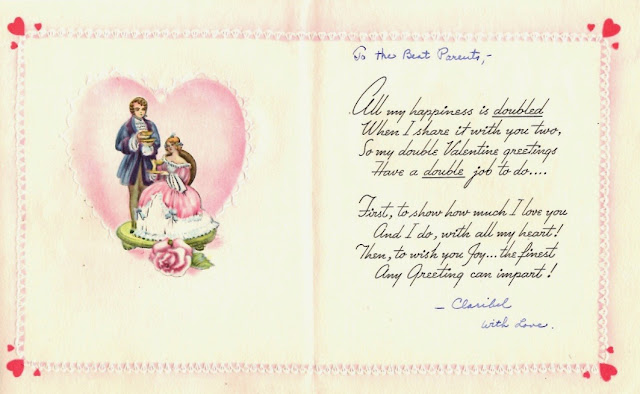 To the Best Parents,-
All my happiness is doubled
When I share it with you two,
So my double Valentine greetings
Have a double job to do....
First, to show how much I love you
And I do, with all my heart!
Then, to wish you Joy... the finest
Any Greeting can impart!
- Claribel
With Love.